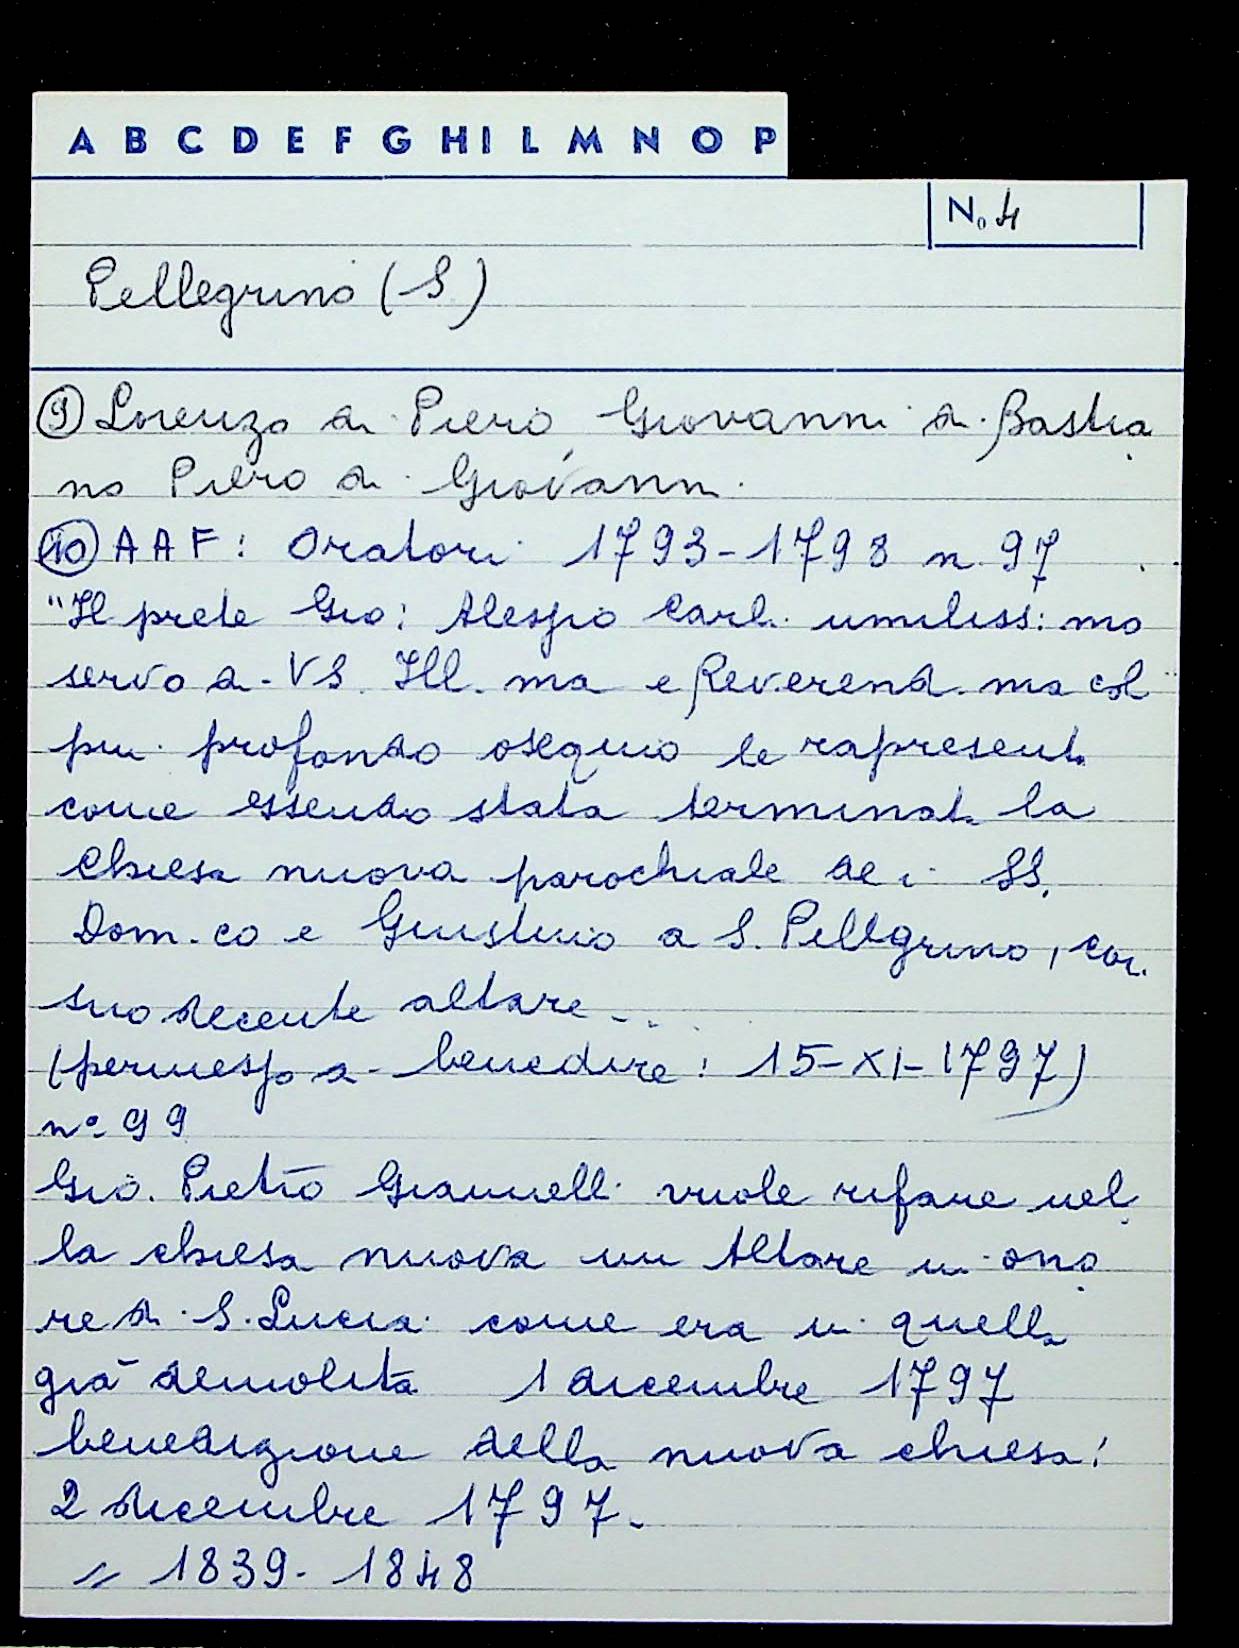 A B C D E F G H I L M N O P
N. 4
Pellegrino (S.)
9) Lorenzo di Piero, Giovanni di Bastia
no Piero di Giovanni.
10) A A F: Oratori 1793-1798 n. 97
"Il prete Gio: Alessio Carli umiliss:mo
servo di VS. Ill.ma e Reverend.ma col
più profondo osequio le rapresenta
come essendo stata terminata la
Chiesa nuova parochiale dei SS.
Dom.co e Giustino a S. Pellegrino, con
suo decente altare...
(permesso a benedire: 15-XI-1797)
n° 99
Gio. Pietro Giannelli vuole rifare nel
la chiesa nuova un Altare in ono
re di S. Lucia come era in quella
già demolita 1 dicembre 1797
benedizione della nuova chiesa:
2 dicembre 1797.
= 1839-1848